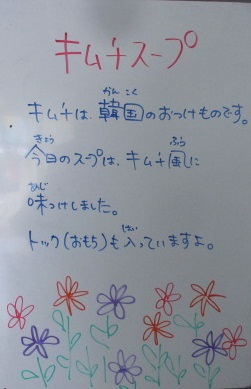 キムチスープ
かんこく
キムチは、韓国のおつけものです。
きょう ふう
今日のスープは、キムチ風に
あじ
味つけしました。
はい
トック(おもち)も入っていますよ。